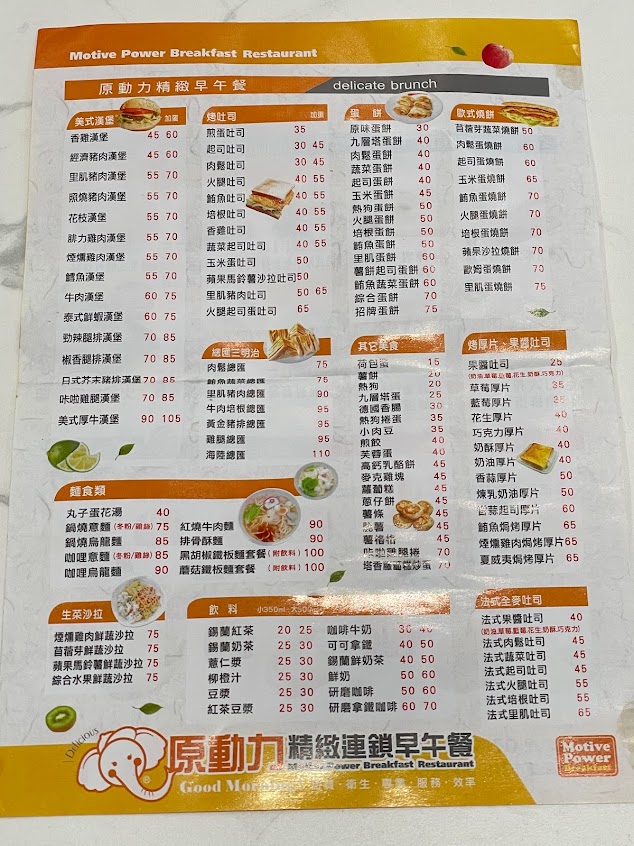 Motive Power Breakfast Restaurant
原動力精緻早午餐 delicate brunch
美式漢堡 加蛋
香雞漢堡 45 60
經濟豬肉漢堡 45 60
里肌豬肉漢堡 55 70
照燒豬肉漢堡 55 70
花枝漢堡 55 70
腓力雞肉漢堡 55 70
煙燻雞肉漢堡 55 70
鱈魚漢堡 55 70
牛肉漢堡 60 75
泰式鮮蝦漢堡 60 75
勁辣腿排漢堡 70 85
椒香腿排漢堡 70 85
日式芥末豬排漢堡 70 85
咔啦雞腿漢堡 70 85
美式厚牛漢堡 90 105
烤吐司 加蛋
煎蛋吐司 35
起司吐司 30 45
肉鬆吐司 30 45
火腿吐司 40 55
鮪魚吐司 40 55
培根吐司 40 55
香雞吐司 40 55
蔬菜起司吐司 40 55
玉米蛋吐司 50
蘋果馬鈴薯沙拉吐司 50
里肌豬肉吐司 50 65
火腿起司蛋吐司 65
蛋 餅
原味蛋餅 30
九層塔蛋餅 40
肉鬆蛋餅 40
蔬菜蛋餅 40
起司蛋餅 40
玉米蛋餅 45
熱狗蛋餅 50
火腿蛋餅 50
培根蛋餅 50
鮪魚蛋餅 50
里肌蛋餅 50
薯餅起司蛋餅 60
鮪魚蔬菜蛋餅 60
綜合蛋餅 70
招牌蛋餅 75
歐式燒餅
苜蓿芽蔬菜燒餅 50
肉鬆蛋燒餅 60
起司蛋燒餅 60
玉米蛋燒餅 65
鮪魚蛋燒餅 70
火腿蛋燒餅 70
培根蛋燒餅 70
蘋果沙拉燒餅 70
歐姆蛋燒餅 70
里肌蛋燒餅 75
總匯三明治
肉鬆總匯 75
鮪魚蔬菜總匯 75
里肌豬肉總匯 90
牛肉培根總匯 95
黃金豬排總匯 95
雞腿總匯 95
海陸總匯 110
其它美食
荷包蛋 15
薯餅 20
熱狗 20
九層塔蛋 25
德國香腸 30
熱狗捲蛋 30
小肉豆 35
煎餃 40
芙蓉蛋 40
高鈣乳酪餅 45
麥克雞塊 45
蘿蔔糕 45
蔥仔餅 45
薯條 45
45
45
咔啦雞腿捲 70
塔香蘿蔔糕炒蛋 70
烤厚片、果醬吐司
果醬吐司 25
草莓厚片 35
藍莓厚片 35
花生厚片 40
巧克力厚片 40
奶酥厚片 40
奶油厚片 40
香蒜厚片 50
煉乳奶油厚片 50
香蒜起司厚片 60
鮪魚焗烤厚片 65
煙燻雞肉焗烤厚片 65
夏威夷焗烤厚片 65
麵食類
丸子蛋花湯 40
鍋燒意麵(冬粉/雞絲) 75
鍋燒烏龍麵 85
咖哩意麵(冬粉/雞絲) 85
咖哩烏龍麵 90
紅燒牛肉麵 90
排骨酥麵 90
黑胡椒鐵板麵套餐(附飲料) 100
蘑菇鐵板麵套餐(附飲料) 100
生菜沙拉
煙燻雞肉鮮蔬沙拉 75
苜蓿芽鮮蔬沙拉 75
蘋果馬鈴薯鮮蔬沙拉 75
綜合水果鮮蔬沙拉 75
飲 料 小350ml
錫蘭紅茶 20 25
錫蘭奶茶 25 30
薏仁漿 25 30
柳橙汁 25 30
豆漿 25 30
紅茶豆漿 25 30
咖啡牛奶 30 40
可可拿鐵 40 50
錫蘭鮮奶茶 40 50
鮮奶 50 60
研磨咖啡 50 60
研磨拿鐵咖啡 60 70
法式全麥吐司
法式果醬吐司 40
法式肉鬆吐司 45
法式蔬菜吐司 45
法式起司吐司 45
法式火腿吐司 55
法式培根吐司 55
法式里肌吐司 65
Delicious
原動力精緻連鎖早午餐
Motive Power Breakfast Restaurant
Good Morning 衛生·專業·服務·效率
Motive
Power
Breakfast